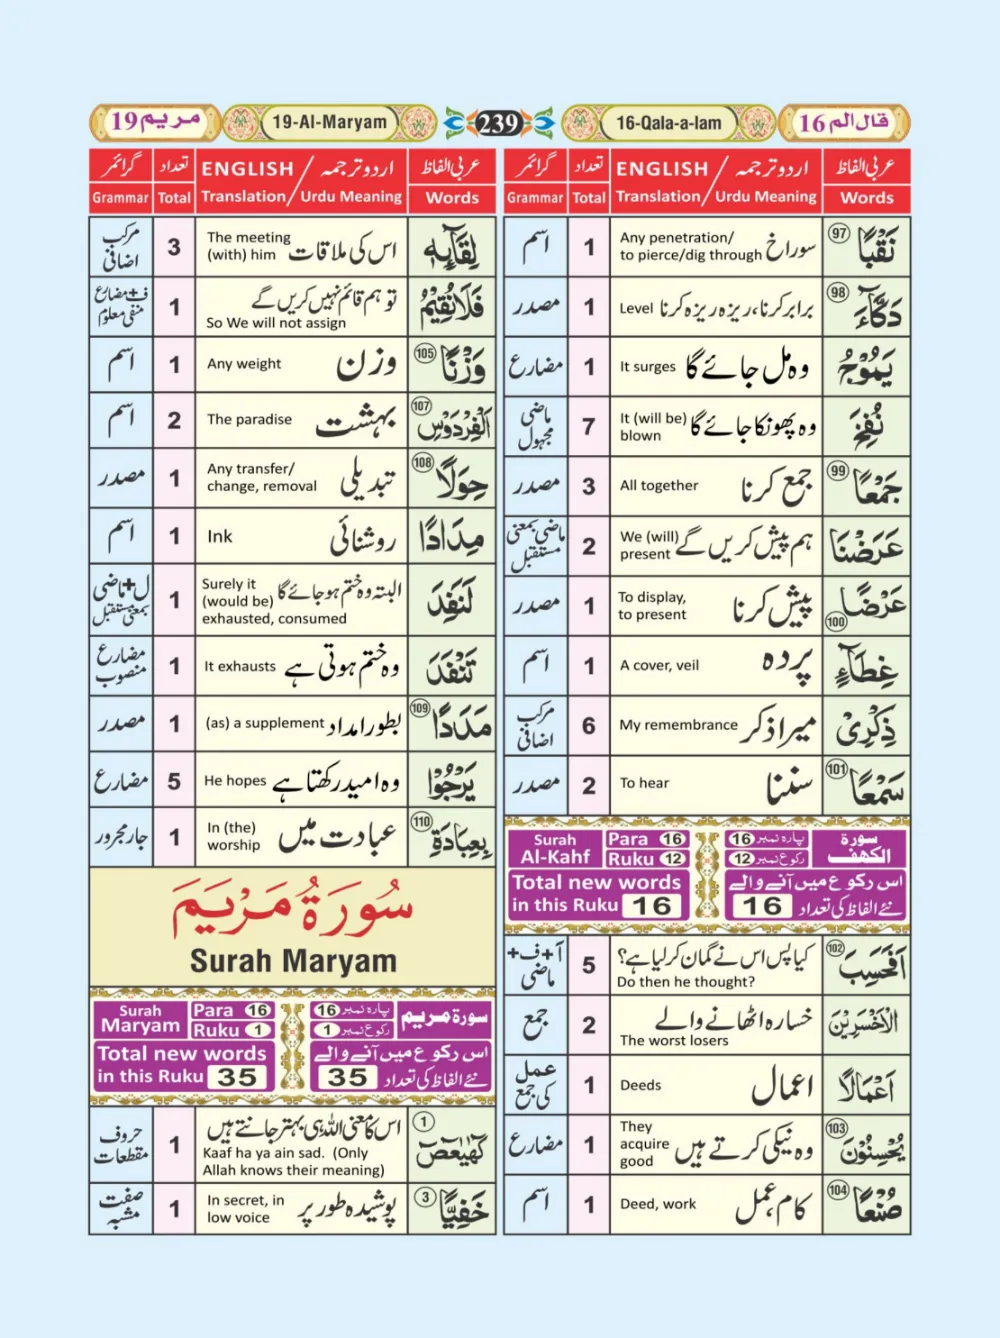 قال الم 16
16-Qala-a-lam
239
19-Al-Maryam
مریم 19
عربی الفاظ
اردو ترجمہ / ENGLISH
تعداد
گرائمر
Words
Translation / Urdu Meaning
Total
Grammar
نَقْبًا ﴿97﴾
سوراخ
Any penetration/
to pierce/dig through
1
اسم
دَكَّآءَ ﴿98﴾
برابر کرنا، ریزہ ریزہ کرنا
Level
1
مصدر
يَّمُوْجُ
وہ مل جائے گا
It surges
1
مضارع
نُفِخَ
وہ پھونکا جائے گا
It (will be)
blown
7
ماضی
مجہول
جَمْعًا ﴿99﴾
جمع کرنا
All together
3
مصدر
عَرَضْنَا
ہم پیش کریں گے
We (will)
present
2
ماضی بمعنی
مستقبل
عَرْضًا ﴿100﴾
پیش کرنا
To display,
to present
1
مصدر
غِطَآءٍ
پردہ
A cover, veil
1
اسم
ذِكْرِیْ
میرا ذکر
My remembrance
6
مرکب
اضافی
سَمْعًا ﴿101﴾
سننا
To hear
2
مصدر
Surah
Al-Kahf
Para 16
Ruku 12
پارہ نمبر 16
رکوع نمبر 12
سورۃ
الکھف
Total new words
in this Ruku 16
اس رکوع میں آنے والے
نئے الفاظ کی تعداد 16
اَفَحَسِبَ ﴿102﴾
کیا پس اس نے گمان کر لیا ہے؟
Do then he thought?
5
أ+ف+
ماضی
الْاَخْسَرِيْنَ
خسارہ اٹھانے والے
The worst losers
2
جمع
اَعْمَالًا
اعمال
Deeds
1
عمل
کی جمع
يُحْسِنُوْنَ ﴿103﴾
وہ نیکی کرتے ہیں
They
acquire
good
1
مضارع
صُنْعًا ﴿104﴾
کام، عمل
Deed, work
1
اسم
عربی الفاظ
اردو ترجمہ / ENGLISH
تعداد
گرائمر
Words
Translation / Urdu Meaning
Total
Grammar
لِقَآىِٕهٖ
اس کی ملاقات
The meeting
(with) him
3
مرکب
اضافی
فَلَا نُقِيْمُ
تو ہم قائم نہیں کریں گے
So We will not assign
1
ف+مضارع
منفی معلوم
وَزْنًا ﴿105﴾
وزن
Any weight
1
اسم
الْفِرْدَوْسِ ﴿107﴾
بہشت
The paradise
2
اسم
حِوَلًا ﴿108﴾
تبدیلی
Any transfer/
change, removal
1
مصدر
مِدَادًا
روشنائی
Ink
1
اسم
لَنَفِدَ
البتہ وہ ختم ہو جائے گا
Surely it
(would be)
exhausted, consumed
1
ل+ماضی
بمعنی مستقبل
تَنْفَدَ
وہ ختم ہوتی ہے
It exhausts
1
مضارع
منصوب
مَدَدًا ﴿109﴾
بطور امداد
(as) a supplement
1
مصدر
يَرْجُوْا
وہ امید رکھتا ہے
He hopes
5
مضارع
بِعِبَادَةِ ﴿110﴾
عبادت میں
In (the)
worship
1
جار مجرور
سُورَةُ مَرْيَمَ
Surah Maryam
Surah
Maryam
Para 16
Ruku 1
پارہ نمبر 16
رکوع نمبر 1
سورۃ مریم
Total new words
in this Ruku 35
اس رکوع میں آنے والے
نئے الفاظ کی تعداد 35
كٓهٰيٰعٓصٓ ﴿1﴾
اس کا معنی اللہ ہی بہتر جانتے ہیں
Kaaf ha ya ain sad. (Only
Allah knows their meaning)
1
حروف
مقطعات
خَفِيًّا ﴿3﴾
پوشیدہ طور پر
In secret, in
low voice
1
صفت
مشبہ